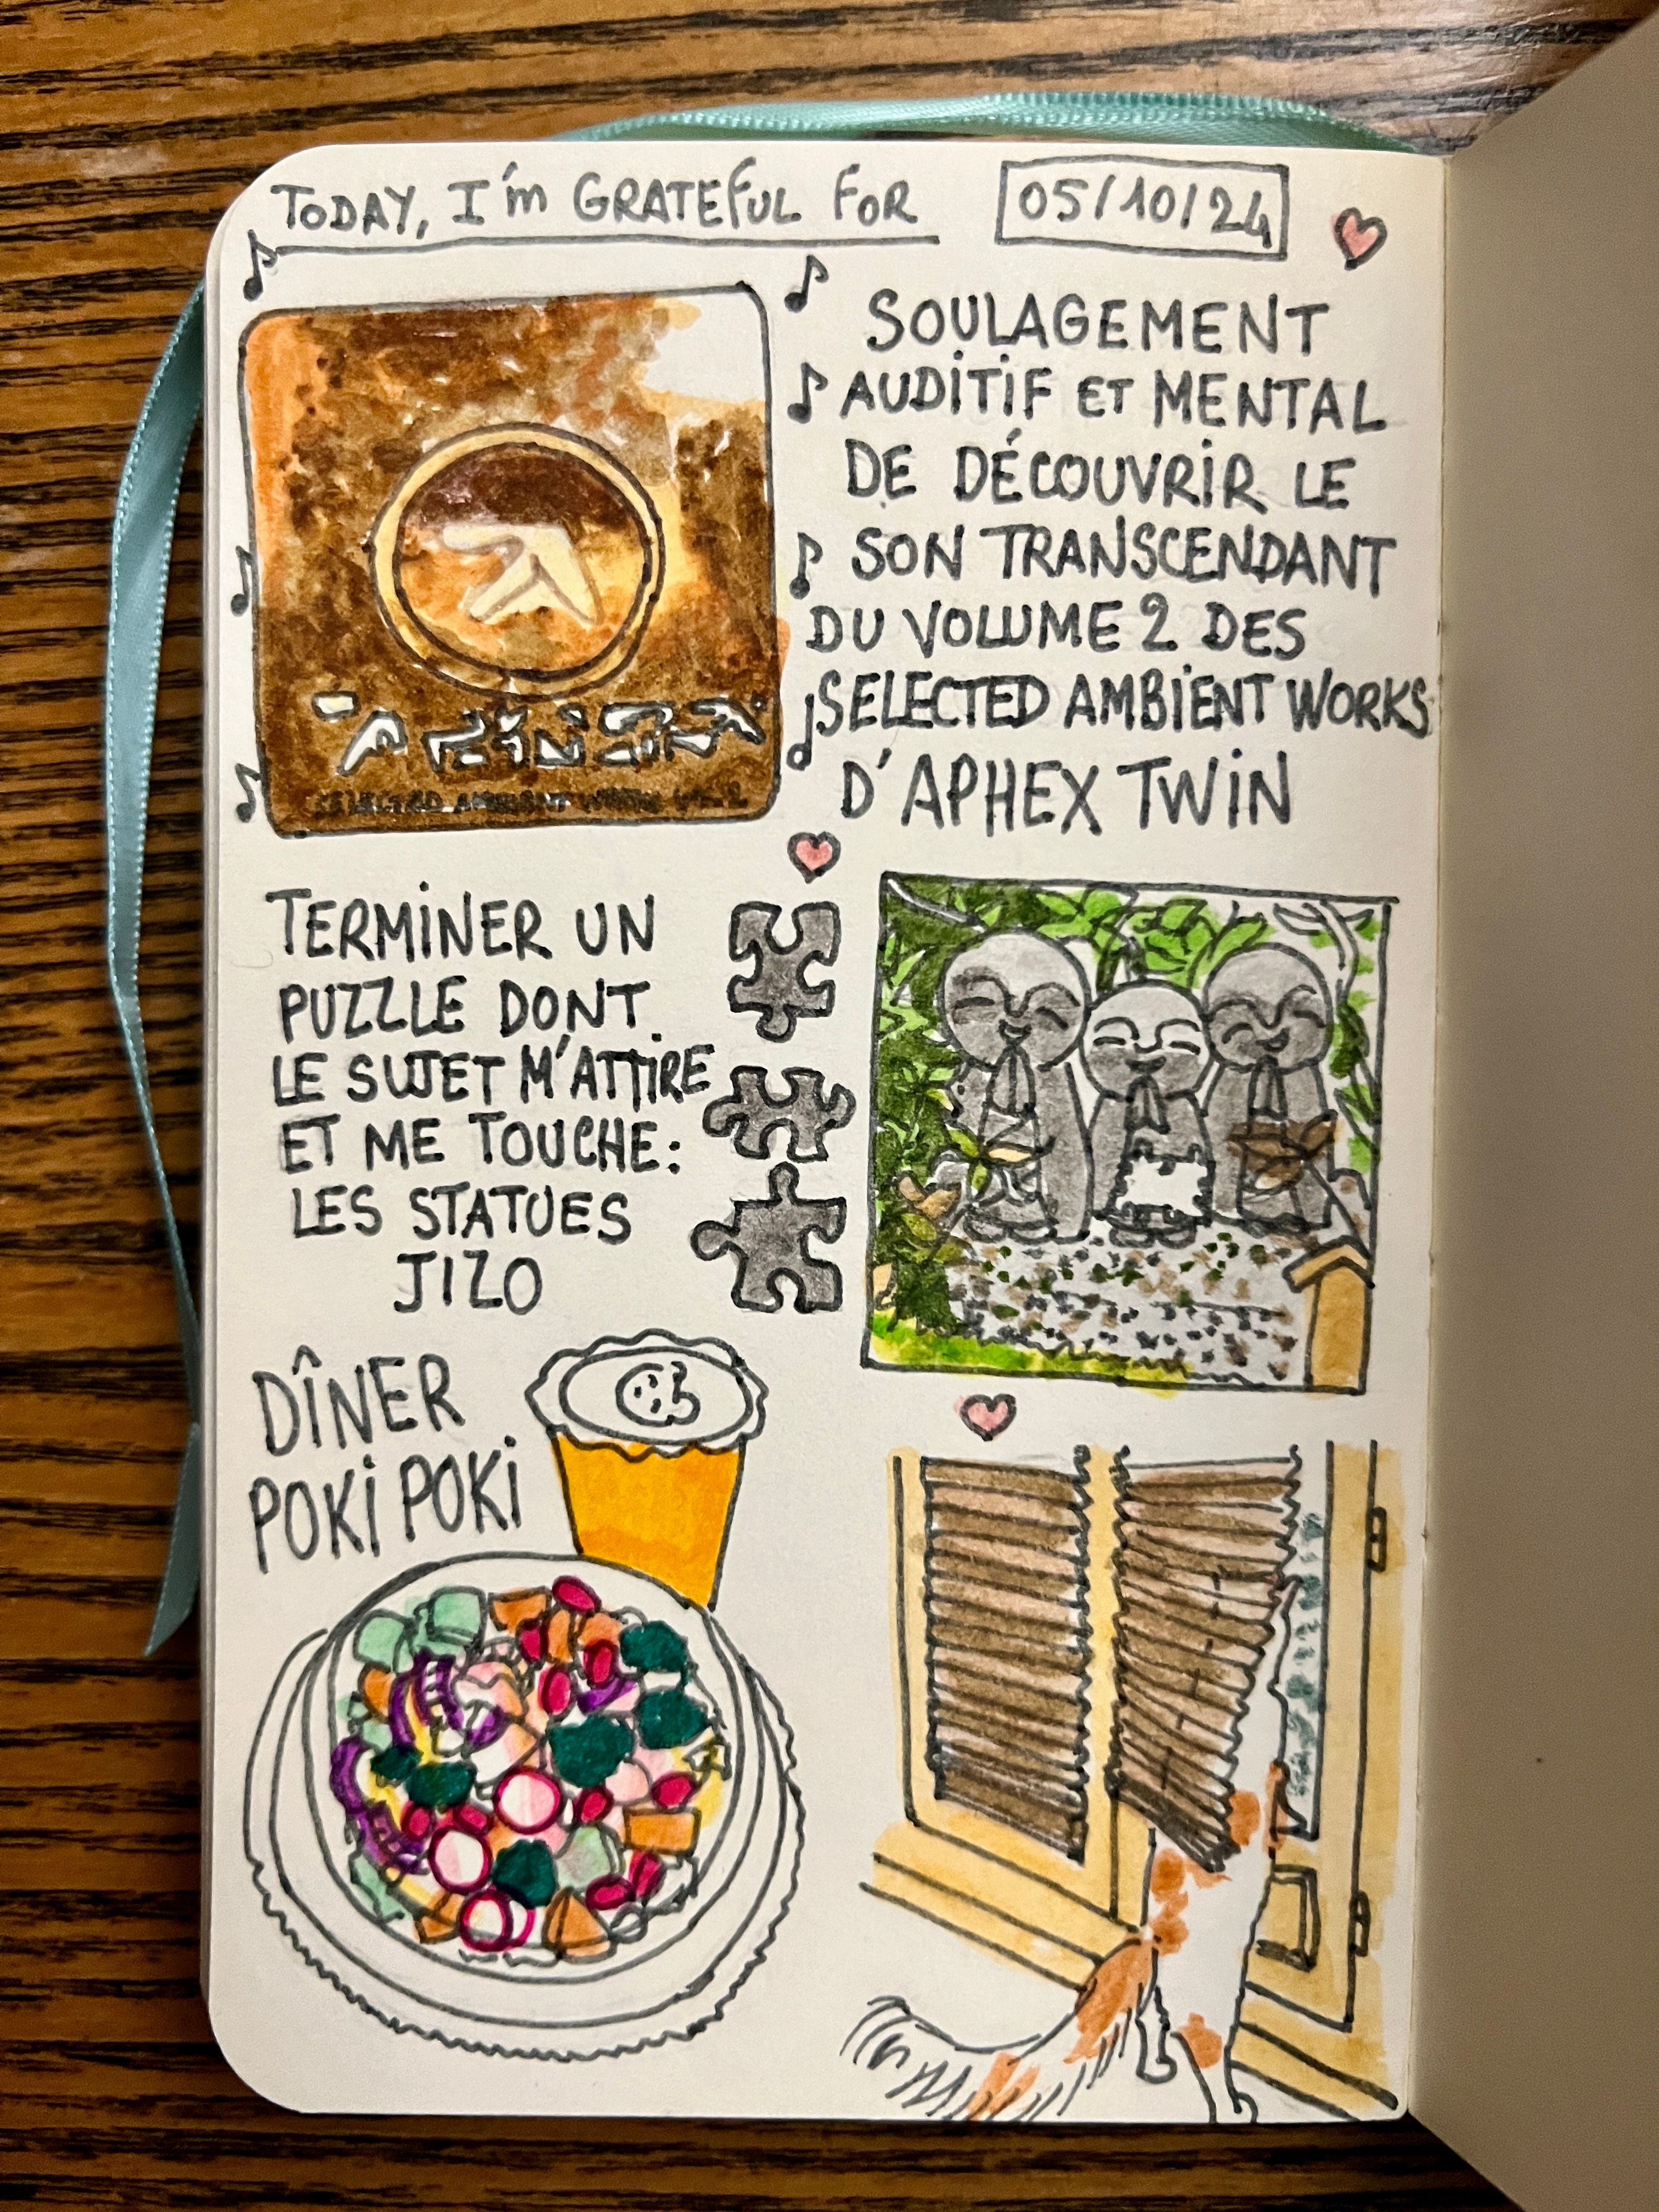 TODAY, I'm GRATEFUL FOR
05/10/24
SOULAGEMENT
AUDITIF ET MENTAL
DE DÉCOUVRIR LE
SON TRANSCENDANT
DU VOLUME 2 DES
SELECTED AMBIENT WORKS
D'APHEX TWIN
SELECTED AMBIENT WORKS VOL. 2
TERMINER UN
PUZZLE DONT
LE SUJET M'ATTIRE
ET ME TOUCHE:
LES STATUES
JIZO
DÎNER
POKI POKI